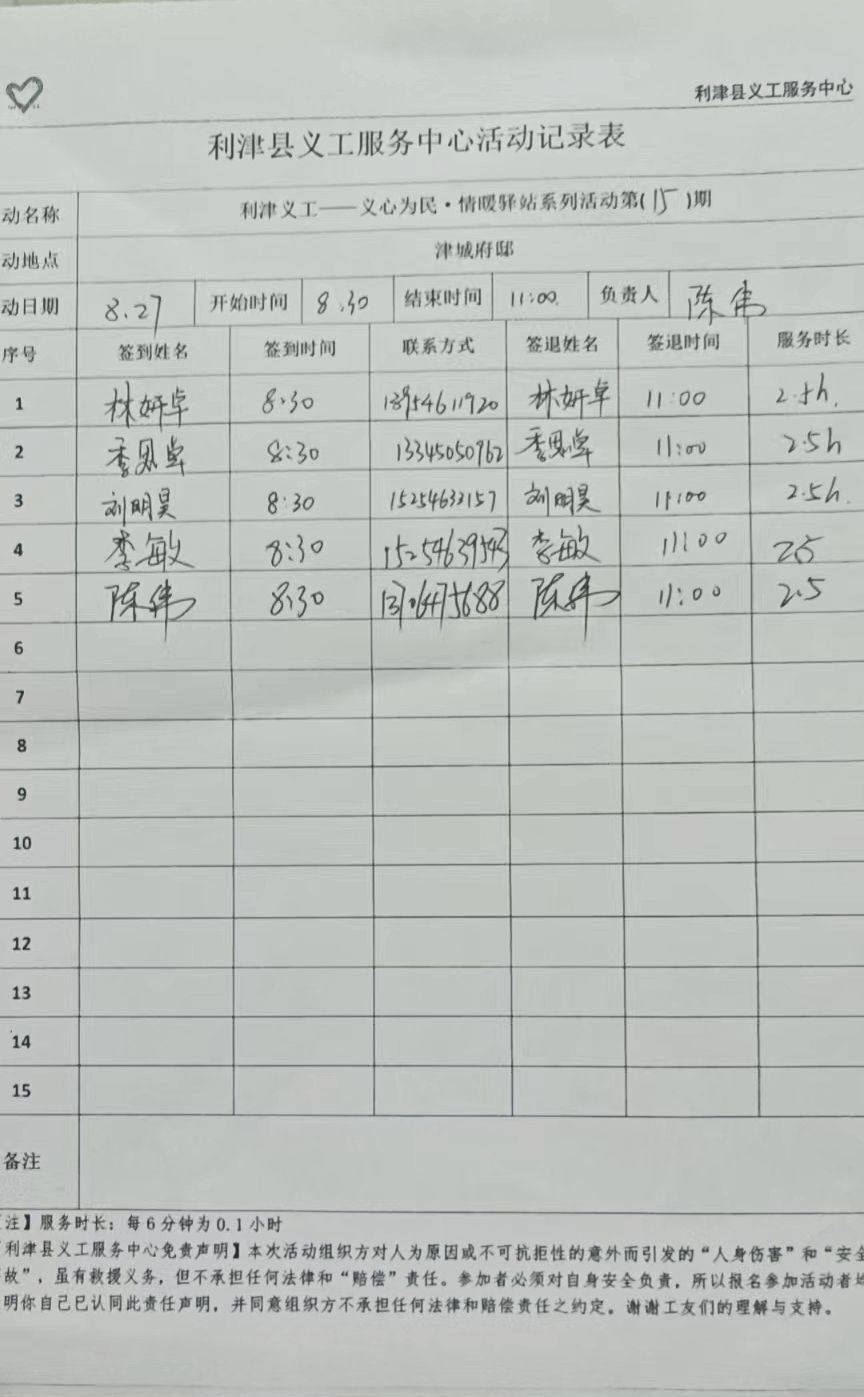 利津县义工服务中心
利津县义工服务中心活动记录表
动名称 利津义工——义心为民·情暖驿站系列活动第(15)期
动地点 津城府邸
动日期 8.27 开始时间 8:30 结束时间 11:00 负责人 陈伟
序号 签到姓名 签到时间 联系方式 签退姓名 签退时间 服务时长
1 林妍卓 8:30 13954611920 林妍卓 11:00 2.5h.
2 8:30 13345050762 11:00 2.5h
3 刘明昊 8:30 15254632157 刘明昊 11:00 2.5h.
4 李敏 8:30 15254639543 李敏 11:00 25
5 陈伟 8:30 陈伟 11:00 2.5
6
7
8
9
10
11
12
13
14
15
备注
注】服务时长：每6分钟为0.1小时
利津县义工服务中心免责声明】本次活动组织方对人为原因或不可抗拒性的意外而引发的“人身伤害”和“安全
故”，虽有救援义务，但不承担任何法律和“赔偿”责任。参加者必须对自身安全负责，所以报名参加活动者均
明你自己已认同此责任声明，并同意组织方不承担任何法律和赔偿责任之约定。谢谢工友们的理解与支持。